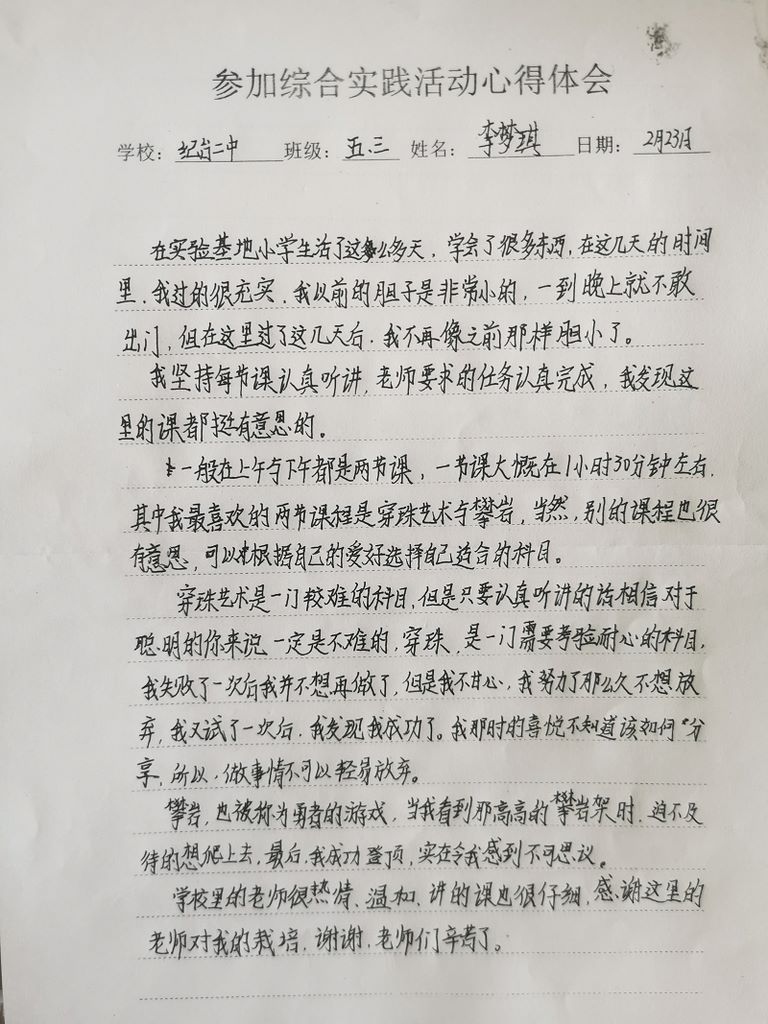 参加综合实践活动心得体会
学校：纪台二中 班级：五.三 姓名：李梦琪 日期：2月23日
在实验基地小学生活了这么多天，学会了很多东西，在这几天的时间
里，我过的很充实，我以前的胆子是非常小的，一到晚上就不敢
出门，但在这里过了这几天后，我不再像之前那样胆小了。
我坚持每节课认真听讲，老师要求的任务认真完成，我发现这
里的课都挺有意思的。
一般在上午与下午都是两节课，一节课大慨在1小时30分钟左右，
其中我最喜欢的两节课程是穿珠艺术与攀岩，当然，别的课程也很
有意思，可以根据自己的爱好选择自己适合的科目。
穿珠艺术是一门较难的科目，但是只要认真听讲的话相信对于
聪明的你来说一定是不难的，穿珠，是一门需要考验耐心的科目，
我失败了一次后我并不想再做了，但是我不甘心，我努力了那么久不想放
弃，我又试了一次后，我发现我成功了。我那时的喜悦不知道该如何“分
享，所以，做事情不可以轻易放弃。
攀岩，也被称为勇者的游戏，当我看到那高高的攀岩架时，迫不及
待的想爬上去，最后，我成功登顶，实在令我感到不可思议。
学校里的老师很热情、温和、讲的课也很仔细，感谢这里的
老师对我的栽培，谢谢，老师们辛苦了。